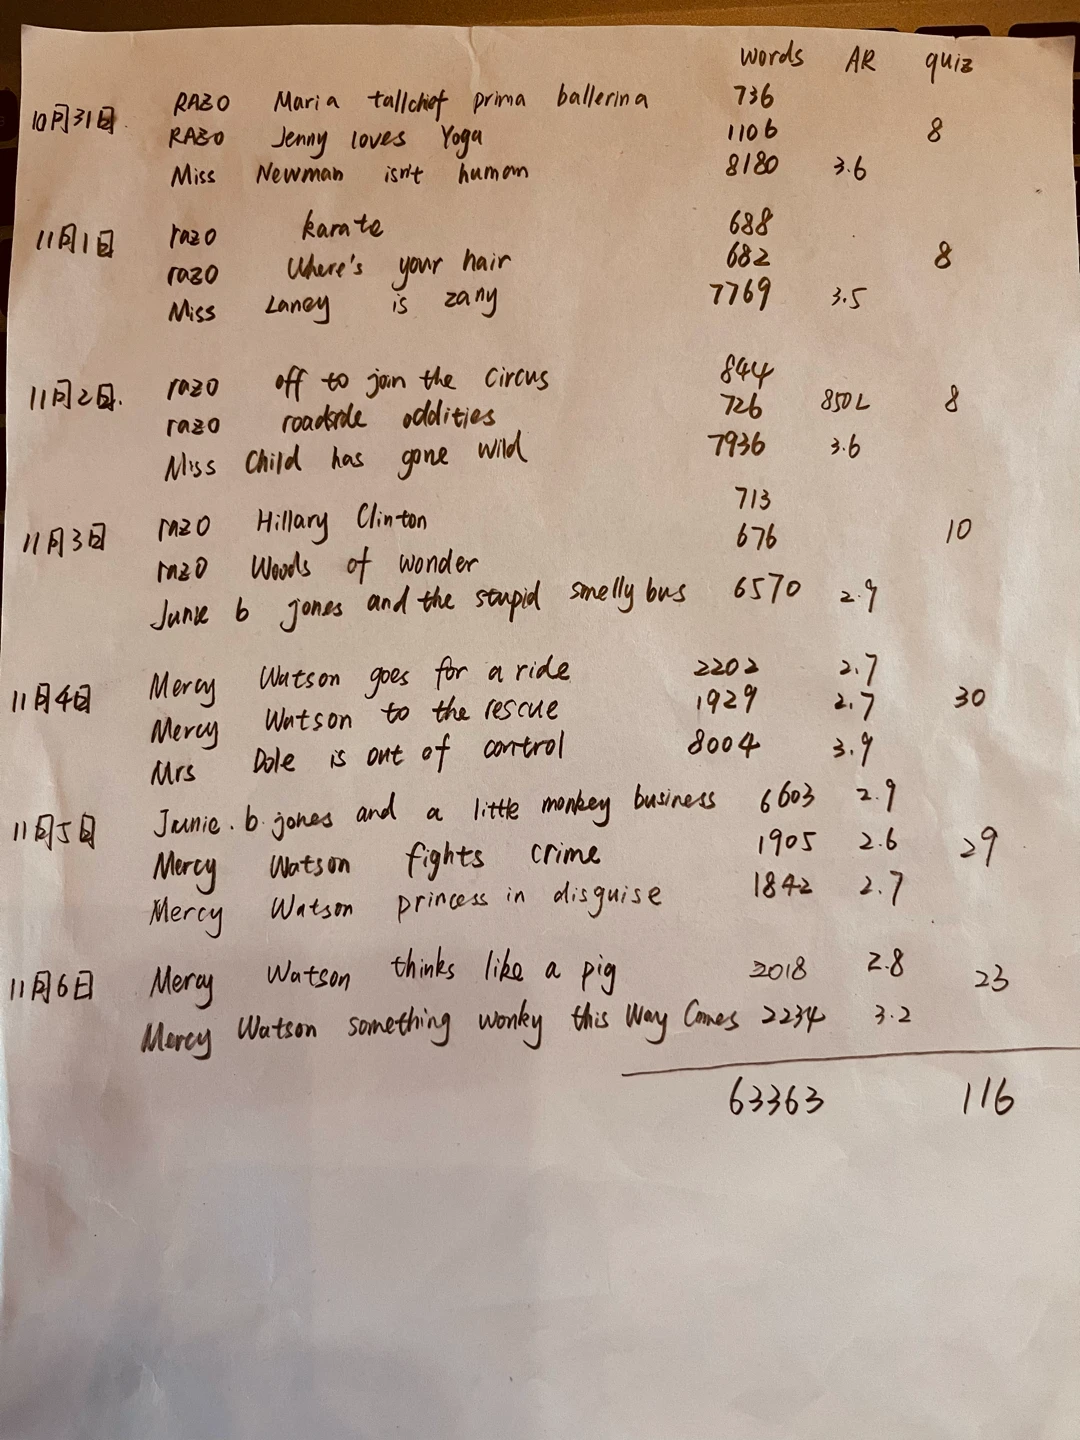 words AR quiz
10月31日. RAZO Maria tallchief prima ballerina 736
RAZO Jenny loves Yoga 1106 8
Miss Newman isn't human 8180 3.6
11月1日 razo karate 688
razo Where's your hair 682 8
Miss Laney is zany 7769 3.5
11月2日. razo off to join the circus 844
razo roadside oddities 726 850L 8
Miss Child has gone wild 7936 3.6
11月3日 razo Hillary Clinton 713
razo Woods of wonder 676 10
Junie b jones and the stupid smelly bus 6570 2.9
11月4日 Mercy Watson goes for a ride 2202 2.7
Mercy Watson to the rescue 1929 2.7 30
Mrs Dole is out of control 8004 3.9
11月5日 Junie. b. jones and a little monkey business 6603 2.9
Mercy Watson fights crime 1905 2.6 29
Mercy Watson princess in disguise 1842 2.7
11月6日 Mercy Watson thinks like a pig 2018 2.8 23
Mercy Watson something wonky this way Comes 2234 3.2
63363 116